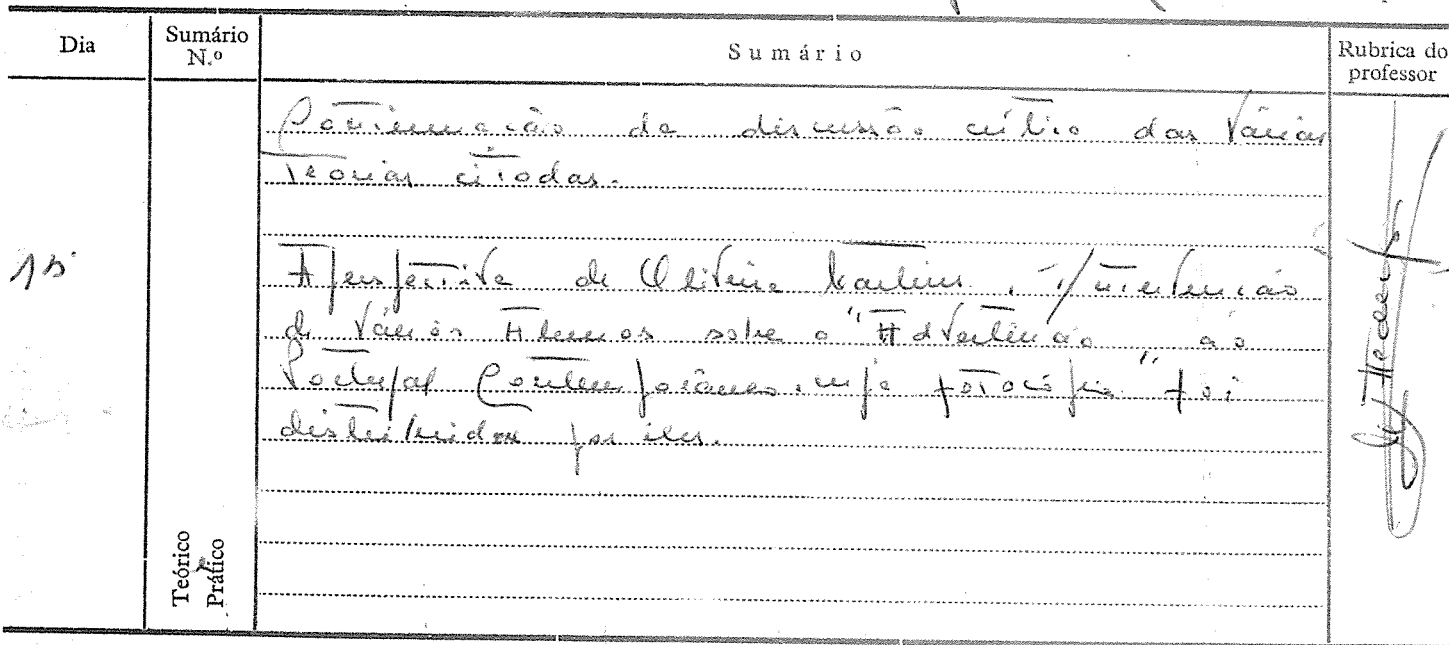 Dia
Sumário N.º
Sumário
Rubrica do professor
Continuação da discussão crítica das várias
Teorias citadas.
15
A perspectiva de Oliveira Martins. Intervenção
de vários Alunos sobre a "Advertência ao
Portugal Contemporâneo", cuja fotocópia foi
distribuída por eles.
Teórico
Prático